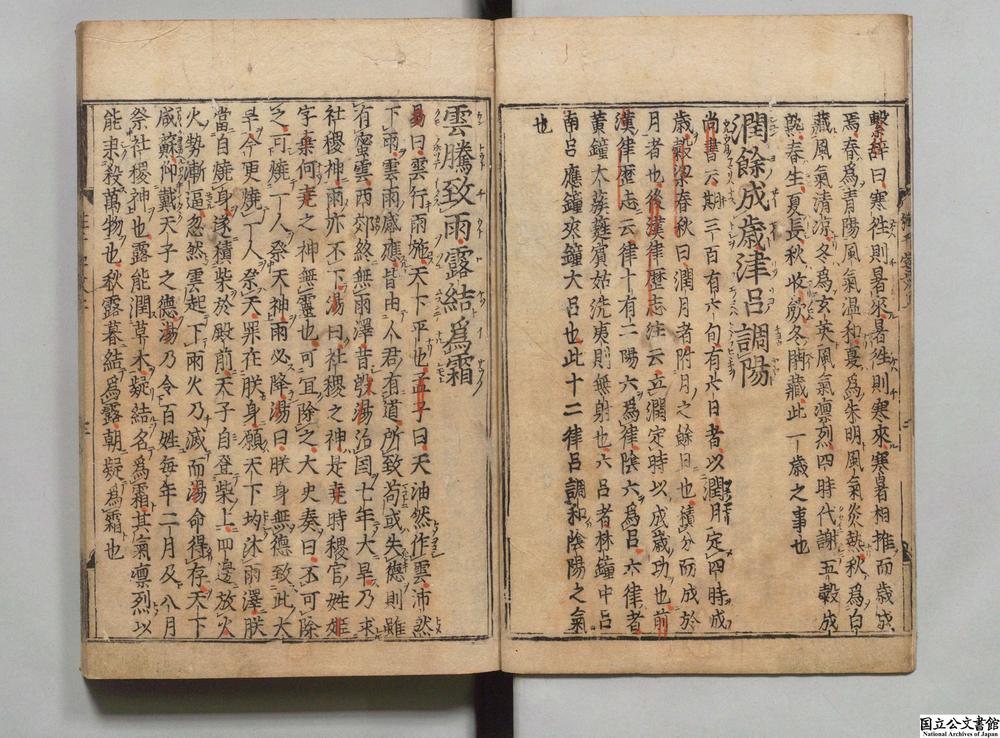 繫辭曰寒往則暑來暑往則寒來寒暑相推而歳成
焉春爲青陽風氣温和夏爲朱明風氣炎熱秋爲白
藏風氣清凉冬爲玄英風氣凛烈四時代謝五穀成
熟春生夏長秋收斂冬閉藏此一歳之事也
潤餘成歳律吕調陽
尚書云期三百有六旬有六日者以潤月定四時成
歳穀梁春秋曰潤月者附月之餘日也積分而成於
月者也後漢律歴志註云立潤定時以成歳功也前
漢律歴志云律十有二陽六爲律陰六爲吕六律者
黄鐘大蔟㽔賓姑洗夷則無射也六吕者林鐘中吕
南吕應鐘夾鐘大吕也此十二律吕調和陰陽之氣
也
雲騰致雨露結爲霜
易曰雲行雨施天下平也孟子曰天油然作雲沛然
下雨雲雨感應皆由人君有道所致苟或失德則雖
有密雲西郊終無雨澤昔殷湯治国七年大旱乃求
社稷神雨亦不下湯曰社稷之神是堯時稷官姓姫
字棄何堯之神無靈也可宜除之大史奏曰不可除
之可燒一人祭天神雨必降湯曰朕身無德致此大
旱今更燒一人祭天罪在朕身願天下均沐雨澤朕
當自燒身遂積柴於殿前天子自登柴上四邊放火
火勢漸逼忽然雲起下雨火乃滅而湯命得存天下
咸蘇仰戴天子之德湯乃令百姓毎年二月及八月
祭社稷神也露能潤草木凝結名爲霜其氣凛烈以
能肅殺萬物也秋露暮結爲露朝凝爲霜也
国立公文書館
National Archives of Japan